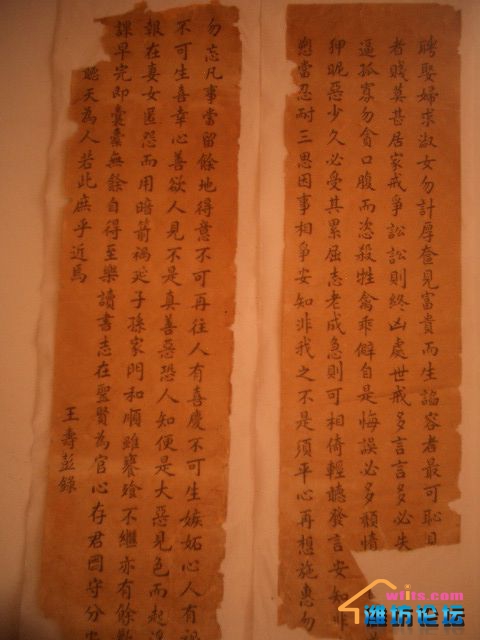 聘娶婦求淑女勿計厚奩見富貴而生諂容者最可恥
者賤莫甚居家戒爭訟訟則終凶處世戒多言言多必失
逼孤寡勿貪口腹而恣殺牲禽乖僻自是悔誤必多頹惰
狎昵惡少久必受其累屈志老成急則可相倚輕聽發言安知非
愬當忍耐三思因事相爭安知非我之不是須平心再想施惠勿
勿忘凡事當留餘地得意不可再往人有喜慶不可生嫉妬心人有禍
不可生喜幸心善欲人見不是真善惡恐人知便是大惡見色而起淫
報在妻女匿怨而用暗箭禍延子孫家門和順雖饔飧不繼亦有餘歡
課早完即囊橐無餘自得至樂讀書志在聖賢為官心存君國守分安
聽天為人若此庶乎近焉
王壽彭錄
wfits.com
潍坊论坛